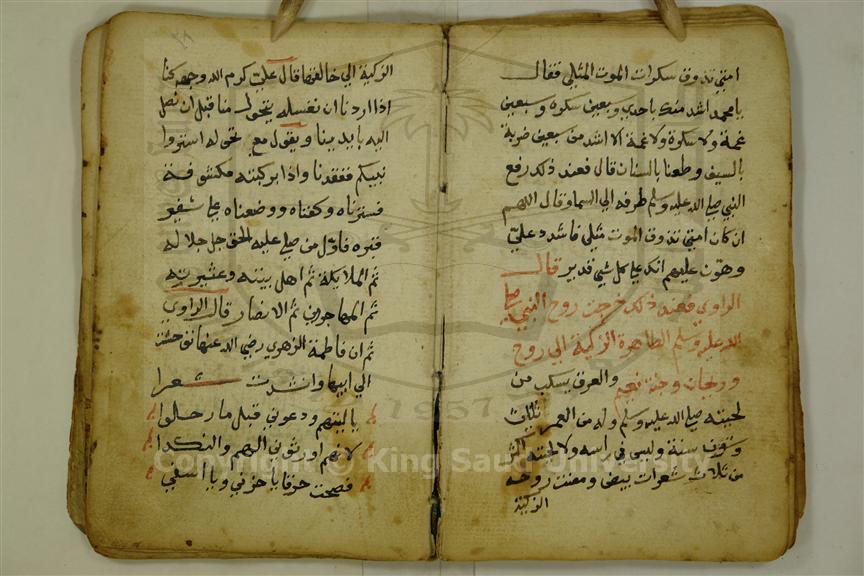 امتي تذوق سكرات الموت المثلي فقال
يا محمد اشد منك باحدي وبعين سكرة وسبعين
غمة ولا سكرة ولا غمة الا اشد من سبعين ضربة
بالسيف وطعنا بالسنان قال فعند ذلك رفع
النبي صلي الله عليه وسلم طرفه الي السما وقال اللهم
ان كان امتي تذوق الموت مثلي فاشدد عليّ
وهوّن عليهم انك علي كل شي قدير قال
الراوي فعند ذلك خرجت روح النبي صلي
الله عليه وسلم الطاهرة الزكية الي روح
وريحان وجنة نعيم والعرق يسكب من
لحيته صلي الله عليه وسلم وله من العمر ثلاث
وستون سنة وليس في راسه ولا لحيته اكثر
من ثلاث شعرات بيض ومضت روحه
الزكية
الزكية الي خالقها قال علي كرم الله وجهه كنا
اذا اردنا ان نغسله يتحول منا قبل ان نصل
اليه بايدينا ويقول مع تحوله استروا
نبيكم فنفقدنا واذا بركبته مكشوفة
فسترناه وكفناه ووضعناه علي شفير
قبره فاول من صلي عليه الحق جل جلاله
ثم الملايكة ثم اهل بيته وعشيرته
ثم المهاجرين ثم الانصار قال الراوي
ثم ان فاطمة الزهري رضي الله عنها توحشت
الي ابيها وانشدت شعرا
ياليتهم ودعوني قبل ما رحلوا
لانهم اورثوني الهم والنكدا
فصحت حزقا يا حزني ويا اسفي
Copyright © King Saud University
1957